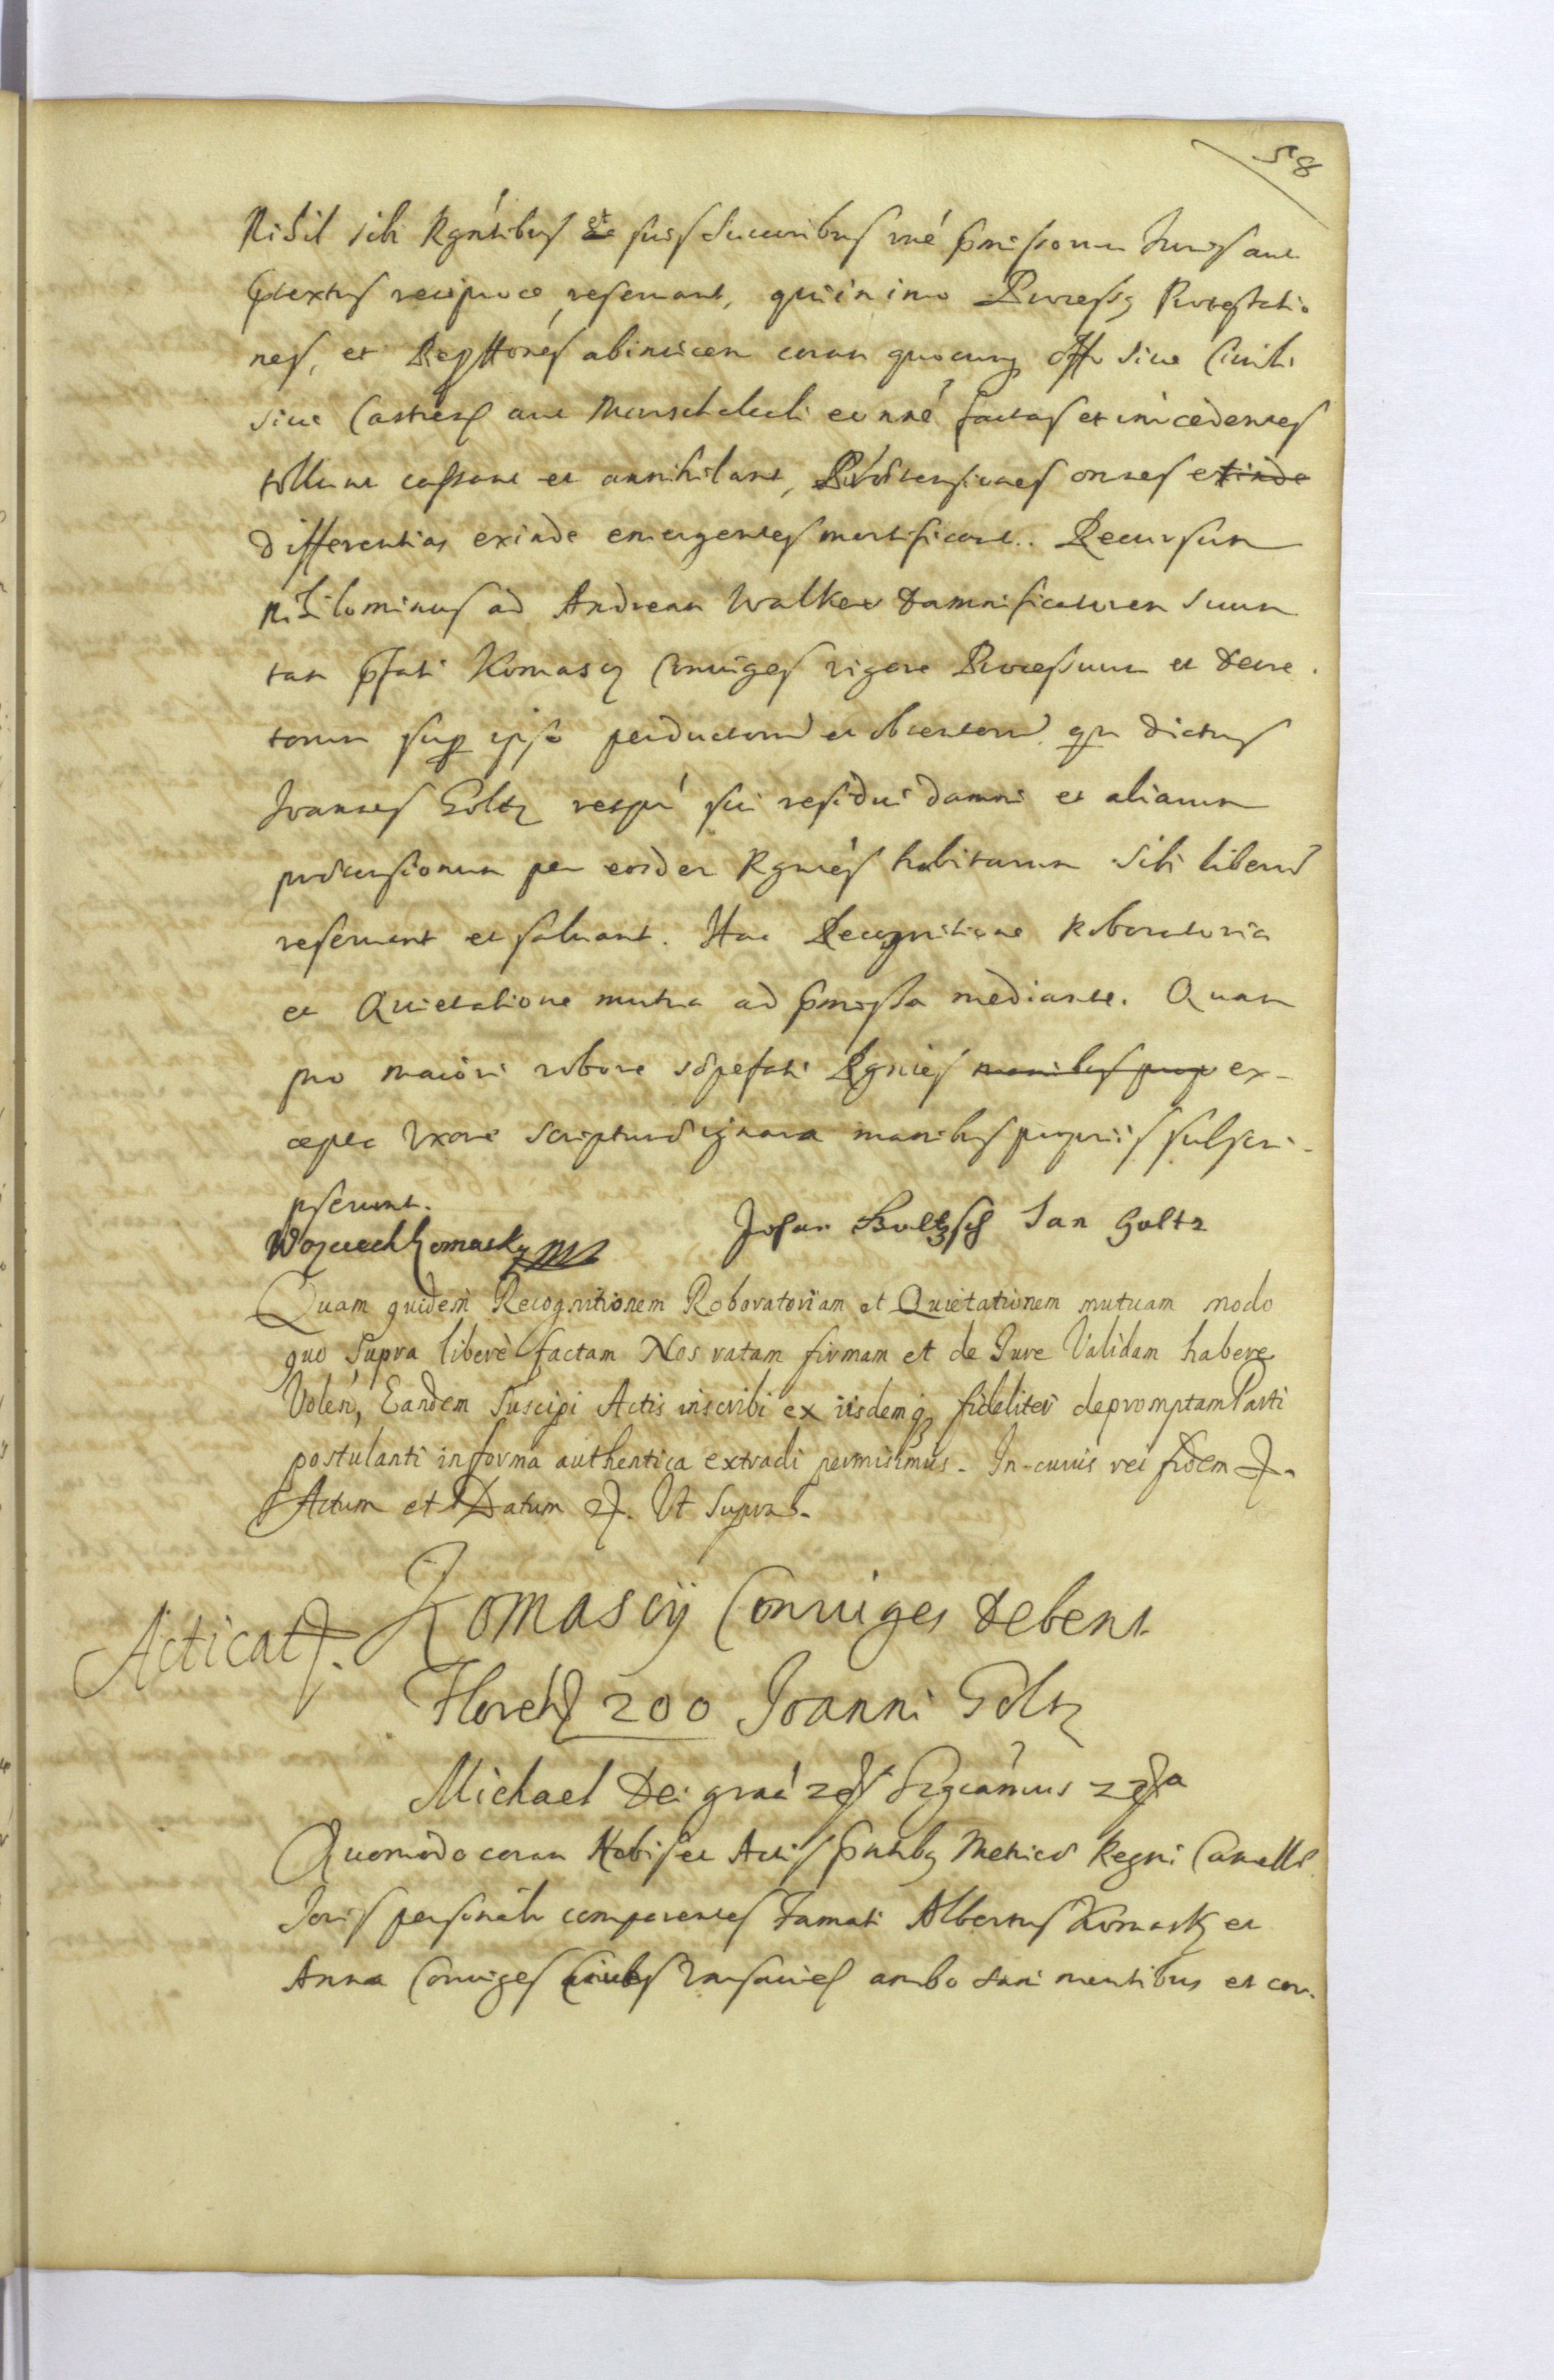 58
Nihil sibi Rgntibus et suis Successoribus rné pmissorum Juris aut
ptextus reciproce reseruant, quinimo Processus Protestatio
nes, et Reptiones abinuicem coram quocunq Offo siue Ciuili
siue Castren aut Marschalcali eo nné factas et inicedentes
tollunt cassant et annihilant, Praetensiones omnes et
differentias exinde emergentes mortificant. Recursum
nihilominus ad Andream Walker Damnificatorem suum
tam pfati Komascy Coniuges vigore Processuum et Decre
torum sup ipso perductorum et obtentorum qm dictus
Joannes Goltz respú sui residui damni et aliarum
praetensionum per eosdem Rgnés habitarum sibi liberum
reseruant et saluant. Hac Recognitione Roboratoria
et Quietatione mutua ad pmissa mediante. Quam
pro maiori robore saepefati Rgnés manibus prop ex-
cepta Uxore scripturae ignara manibus proprijs subscri-
pserunt.
Woyciech Komasky mp
Johan Jan Goltz
Quam quidem Recognitionem Roboratoriam et Quietationem mutuam modo
quo supra liberè factam Nos ratam firmam et de Jure Validam habere
Volen, Eandem suscipi Actis inscribi ex iisdemq fideliter depromptam Parti
postulanti in forma authentica extradi permisimus. In cuius rei fidem
Actum et Datum Ut supra.
Acticat
Komascÿ Coniuges Debent
Floren 200 Joanni Goltz
Michael Dei graá Sgcámus
Quomodo coram Nobis et Actis pntibq Metrices Regni Cancell
Joris personalr comparentes Famati Albertus Komasky et
Anna Coniuges Ciues Varsauien ambo sani mentibus et cor-